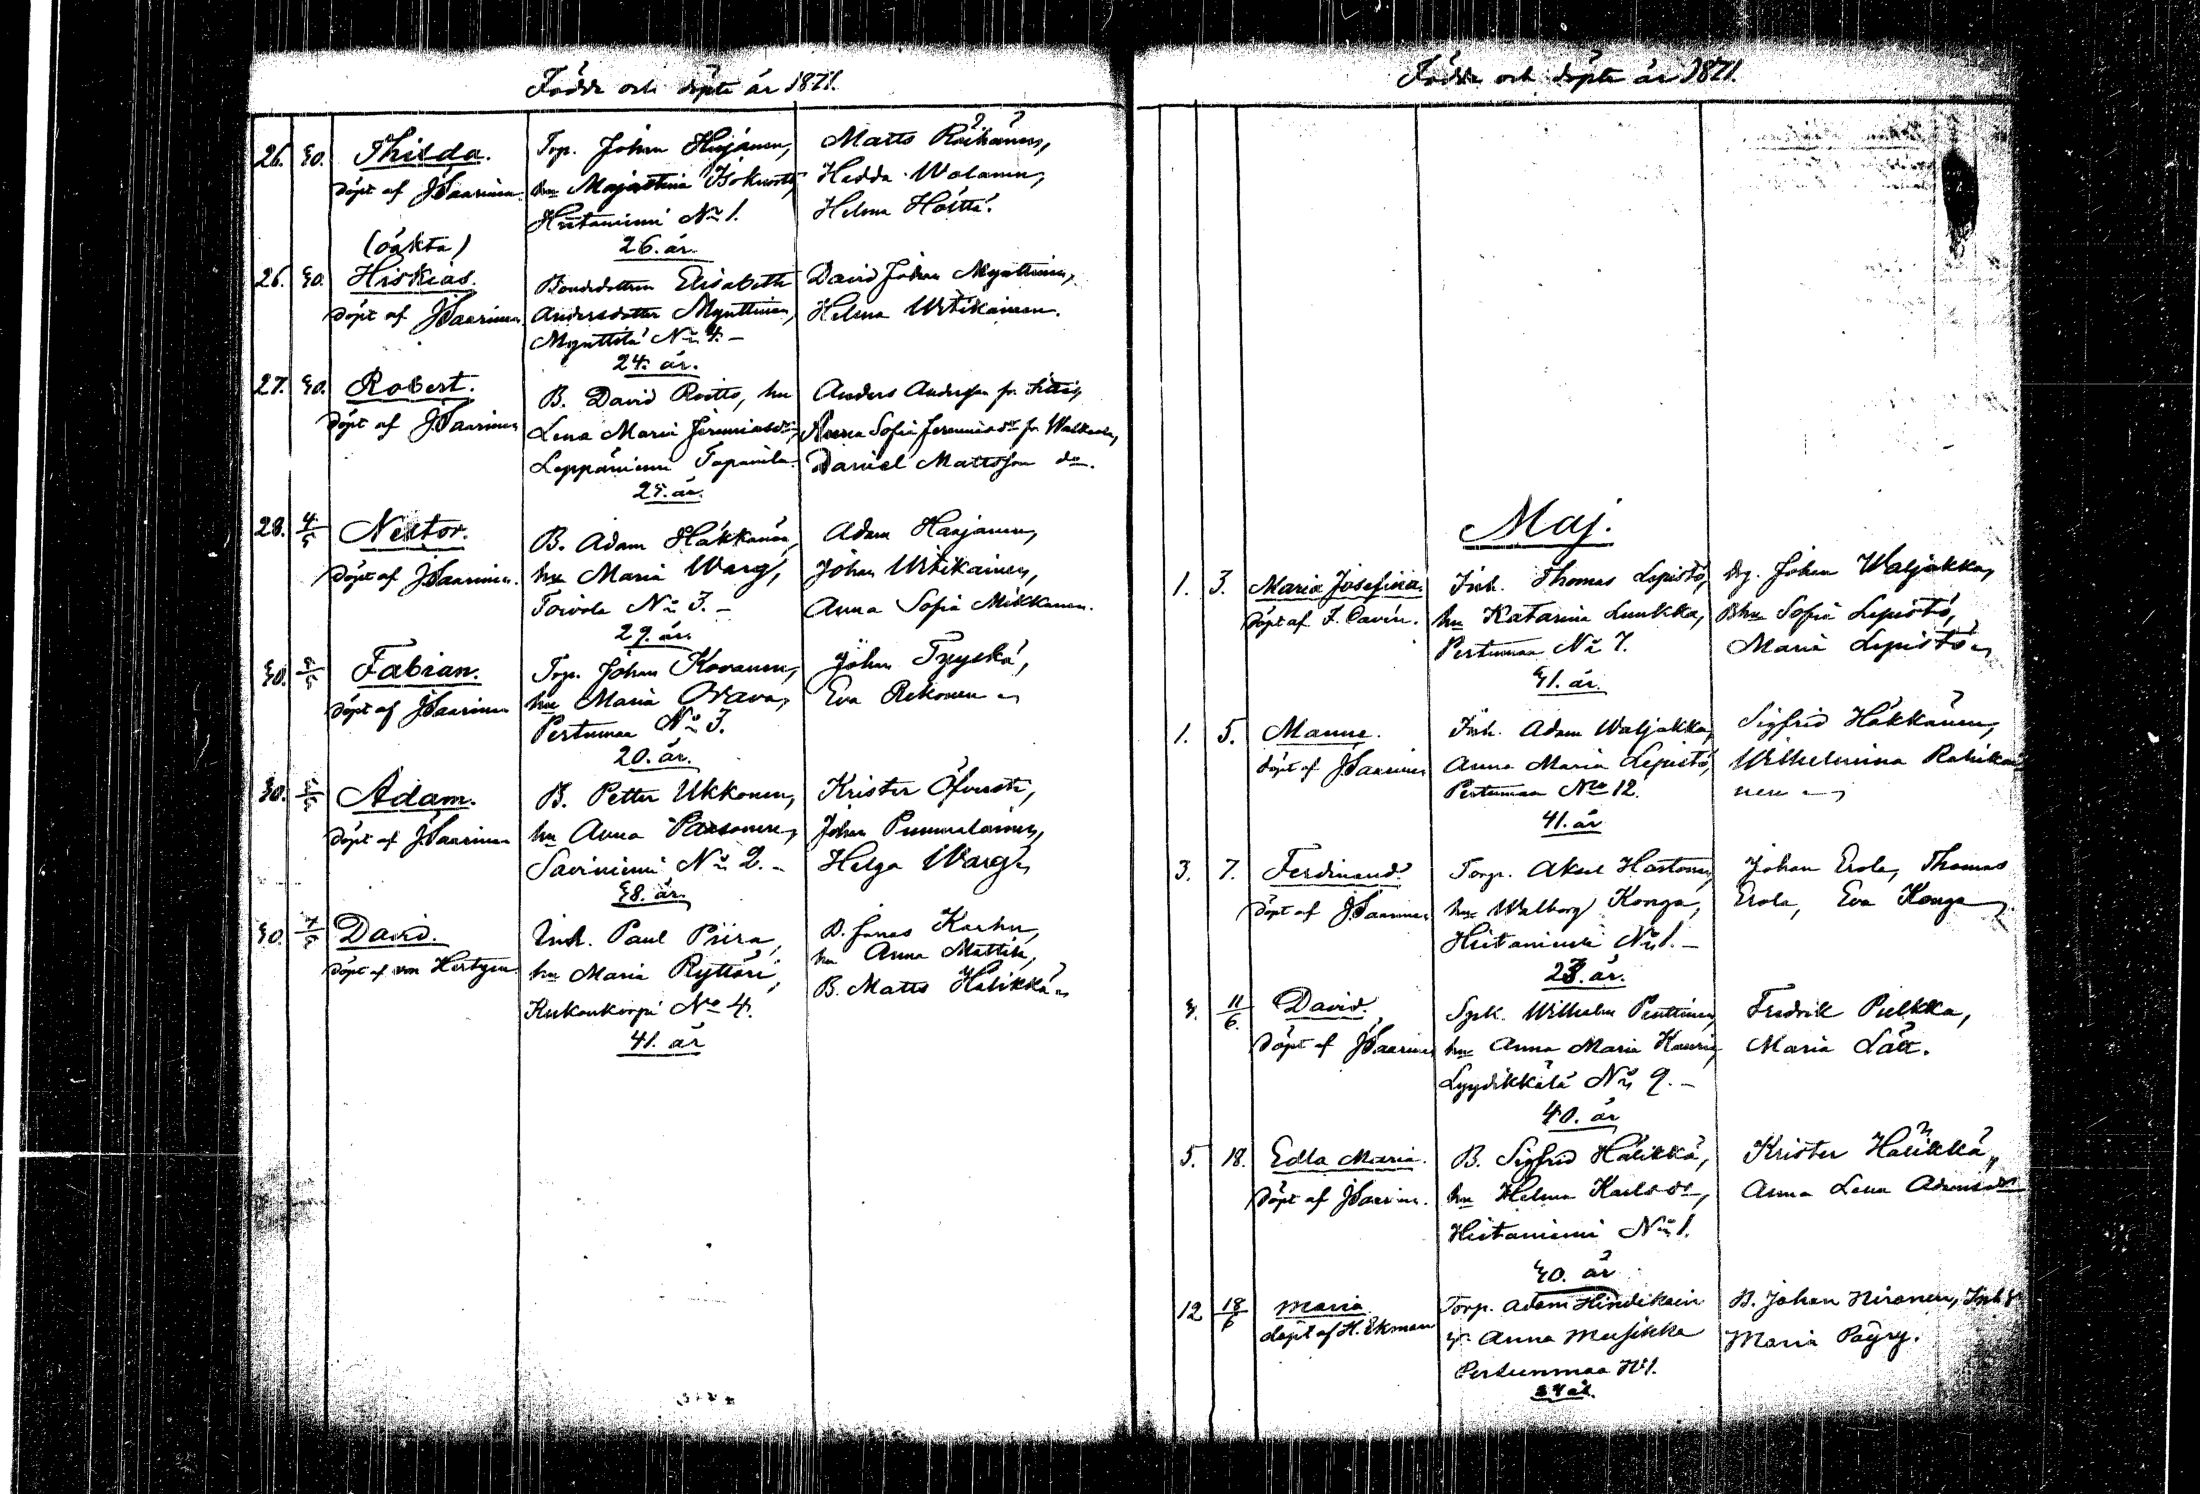 Födde och döpte år 1871.
26. 30. Thilda. Torp. Johan Harjanen, Matts Räihänen,
döpt af J Saarinen. hu Majastina Isokuortti, Hedda Wolanen,
Hietaniemi No 1. Helena Höltta.
26. år.
(oäkta)
26. 30. Hiskias. Bondedottern Elisabeth David Johan Mynttinen,
döpt af J Saarinen Andersdotter Mynttinen, Helena Utikainen.
Mynttilä No 4.
24. år.
27. 30. Robert. B. David Roitto, hu Anders Andersson fr.
döpt af J Saarinen Lena Maria Jeremiasdr, Sofia Jeremiasdr fr Walkeala,
Leppäniemi Tapanila. Daniel Mattsson do.
25. år.
28. 4/5 Nestor. B. Adam Häkkänen, Adam Harjanen,
döpt af J Saarinen. hu Maria Warg, Johan Utikainen,
Toivola No 3. Anna Sofia Mikkanen.
29. år.
30. Fabian. Torp. Johan Kovanen, Johan Tzyskä,
döpt af J Saarinen hu Maria Orava, Eva Rekonen
Pertumaa No 3.
20. år.
30. Adam. B. Petter Ukkonen, Krister Öfversti,
döpt af J Saarinen hu Anna Paasonen, Johan Pummalainen,
Saviniemi No 2. Helga Warg
38. år.
30. 7/5 David. Inh. Paul Piira, B. Jonas Karhu,
döpt af von Hertzen hu Maria Ryttäri, hu Anna Mattila,
Kukonkorpi No 4. B. Matts Halikkä
41. år
Födde och döpte år 1871.
Maj.
1. 3. Maria Josefina. Inh. Thomas Lepistö, Drg. Johan Waljakka,
döpt af F. Cavén. hu Katarina Luukka, Bhu Sofia Lepistö,
Pertumaa No 7. Maria Lepistö
31. år.
1. 5. Manne. Inh. Adam Waljakka, Sigfrid Häkkänen,
döpt af J Saarinen Anna Maria Lepistö, Wilhelmina Rahikai
Pertumaa No 12. nen
41. år
3. 7. Ferdinand. Torp. Aksel Hartonen, Johan Erola, Thomas
döpt af J Saarinen hu Walborg Konga, Erola, Eva Konga
Hietaniemi No 1.
23. år.
3. 11/6. David. Spk. Wilhelm Penttinen, Fredrik Pulkka,
döpt af J Saarinen hu Anna Maria Kauria, Maria Lätt.
Lyydikkälä No 9.
40. år
5. 18. Edla Maria. B. Sigfrid Halikkä, Krister Halikkä,
döpt af J Saarinen. hu Helena Karlsdr, Anna Lena Adamsdr
Hietaniemi No 1.
30. år
12 18/6 Maria. Torp. Adam Hindikain B. Johan Nironen, Inh
döpt af H. Ekman Anna Musikka Maria Päyry.
Pertunmaa No 1.
34 år.